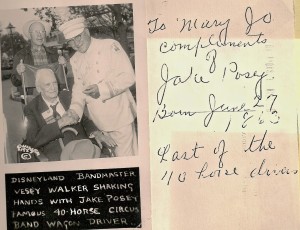 DISNEYLAND BANDMASTER
VESEY WALKER SHAKING
HANDS WITH JAKE POSEY
FAMOUS 40-HORSE CIRCUS
BAND WAGON DRIVER
To Mary Jo
compliments
of
Jake Posey
Born June 27
Last of the
40 horse drivers